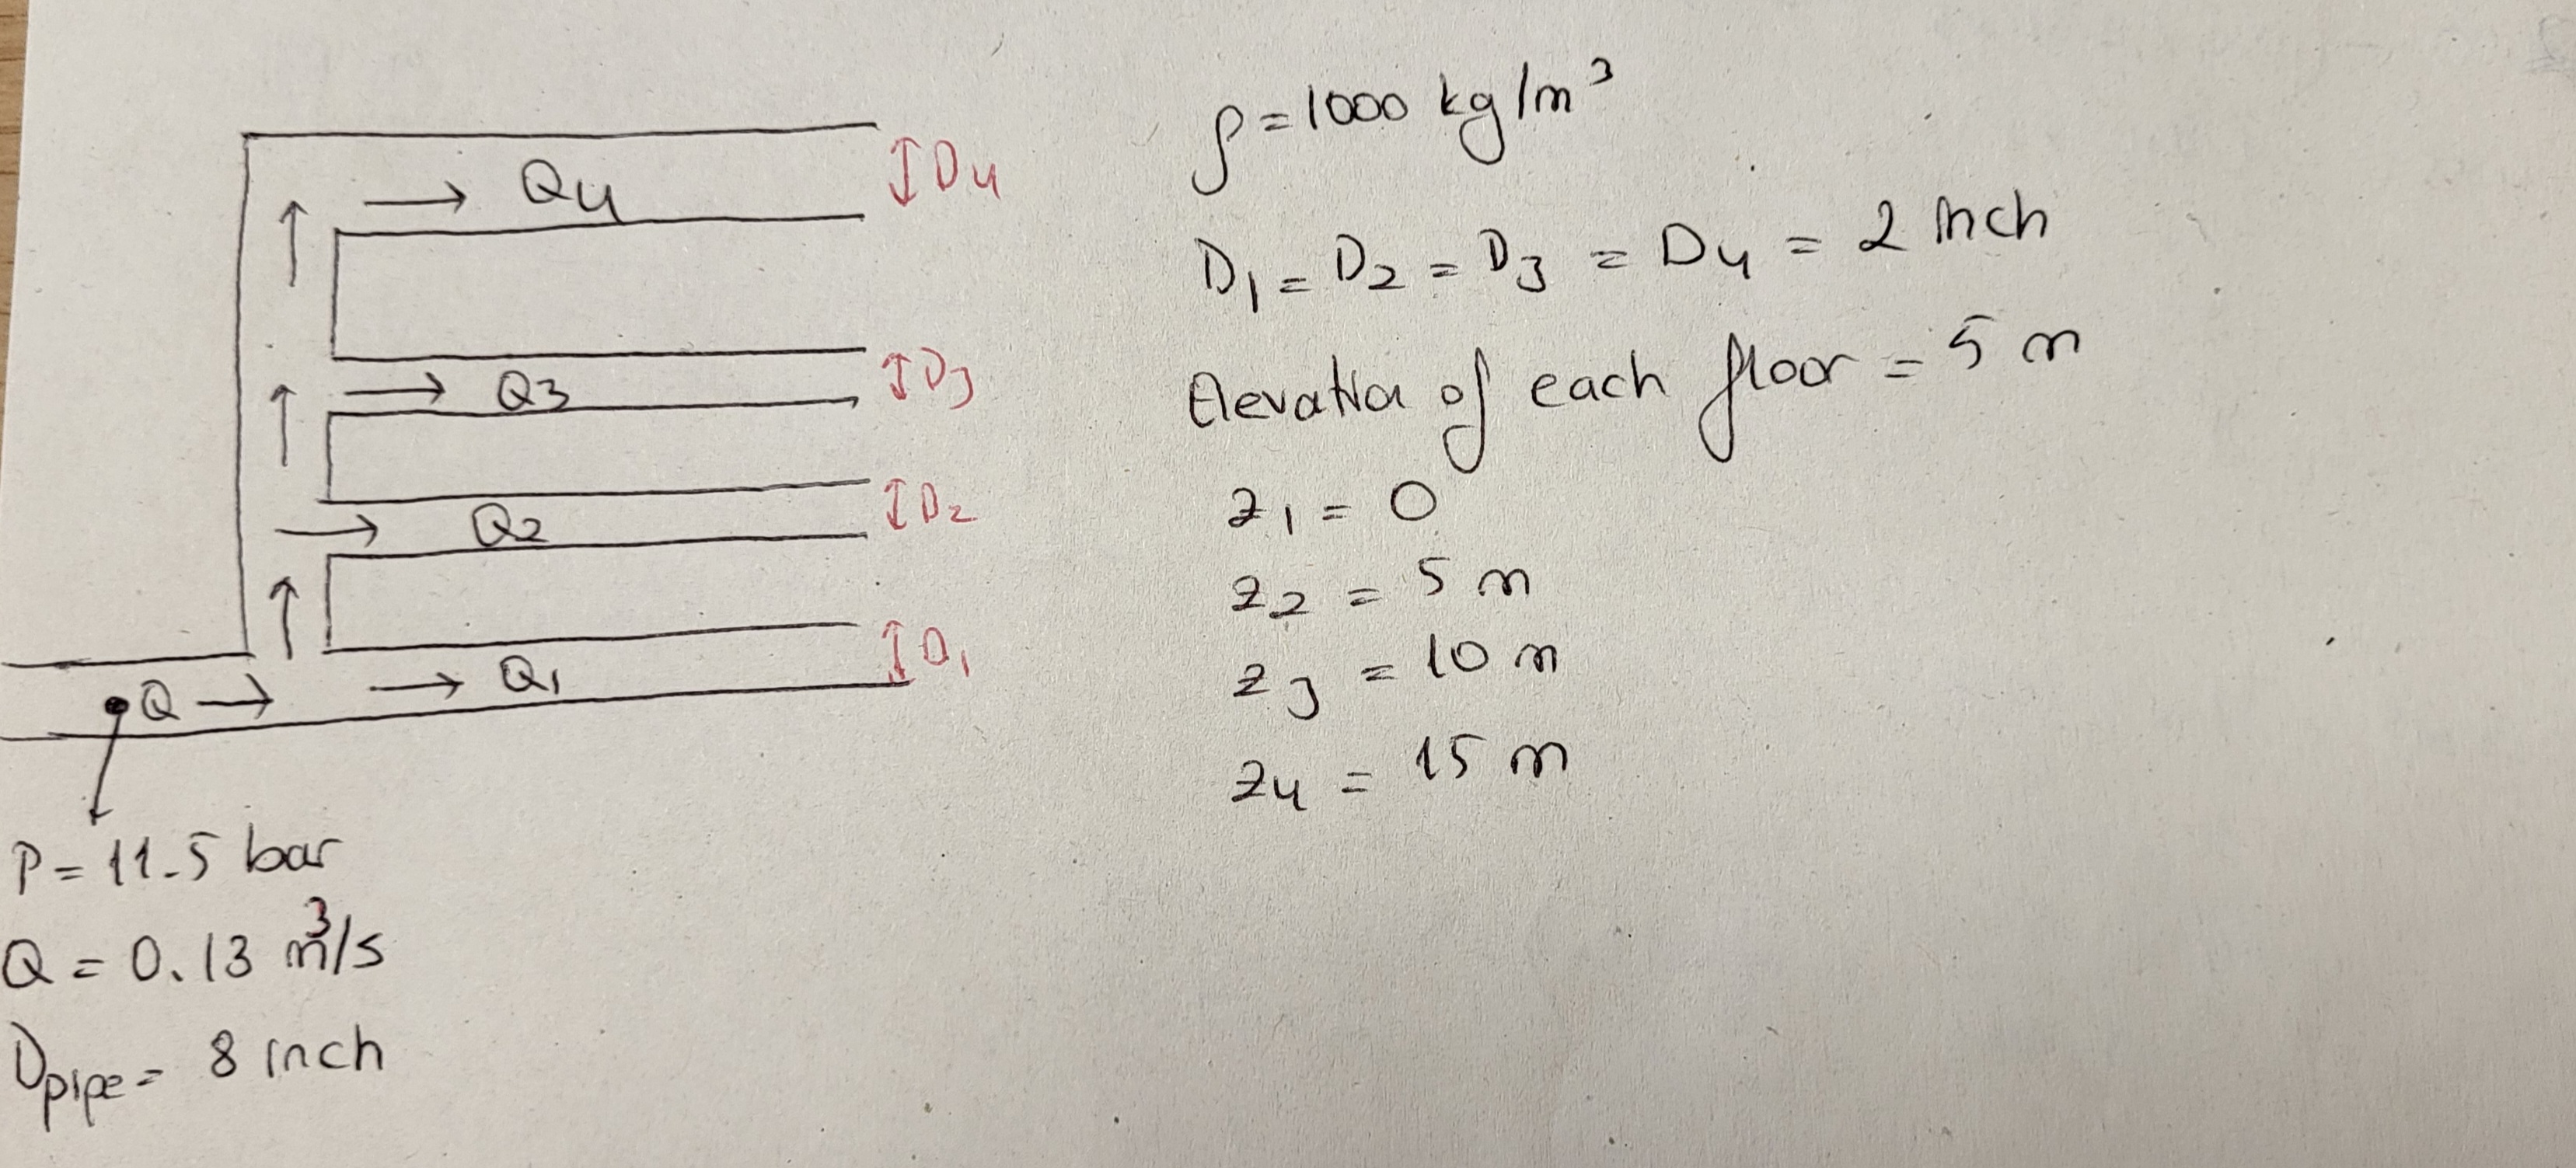 Q4
D4
Q3
D3
Q2
D2
Q1
D1
Q
P = 11.5 bar
Q = 0.13 m³/s
Dpipe = 8 inch
ρ = 1000 kg/m³
D1 = D2 = D3 = D4 = 2 inch
Elevation of each floor = 5 m
z1 = 0
z2 = 5 m
z3 = 10 m
z4 = 15 m